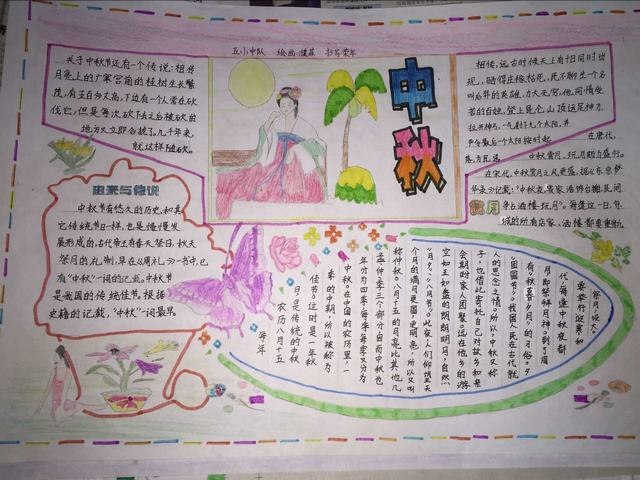 五小中队 绘画:
关于中秋节还有一个传说:相传
月亮上的广寒宫前的桂树生长繁
茂,有五百多丈高,下边有一个人常在砍
伐它,但是每次砍下去之后,被砍的
地方又立即合拢了,几千年来,
就这样随砍
中秋
相传,远古时候天上有十日同时出
现,晒得庄稼枯死,民不聊生,一个名
叫后羿的英雄,力大无穷,他同情受
苦的百姓,登上昆仑山顶,运足神力,
拉开神弓,一气射下九个太阳,并
严令最后一个太阳按时起
落,为民
在唐代,
中秋赏月、玩月颇为盛行。
在宋代,中秋赏月之风更盛,据《东京梦
华录》记载:“中秋夜,贵家结饰台榭,民间
争占酒楼玩月”。每逢这一日,京
城的所有店家、酒楼都要重新
赏月
由来与传说
中秋节有悠久的历史,和其
它传统节日一样,也是慢慢发
展形成的,古代帝王有春天祭日,秋天
祭月的礼制,早在《周礼》一书中,已
有“中秋”一词的记载。中秋节
是我国的传统佳节,根据
史籍的记载,“中秋”一词最早
每年
农历八月十五
日,是传统的中秋
佳节。这时是一年秋
季的中期,所以被称为
中秋。在中国的农历里,一
年分为四季,每季又分为
孟、仲、季三个部分,因而中秋也
称仲秋。八月十五的月亮比其他几
个月的满月更圆,更明亮,所以又叫
“月夕”,“八月节”。此夜,人们仰望天
空如玉如盘的朗朗明月,自然
会期盼家人团聚。远在他乡的游
子,也借此寄托自己对故乡和亲
人的思念之情。所以,中秋又称
“团圆节”。我国人民在古代就
有“秋暮夕月”的习俗。夕
月,即祭拜月神。到了周
代,每逢中秋夜都
要举行迎寒和
祭月,设大